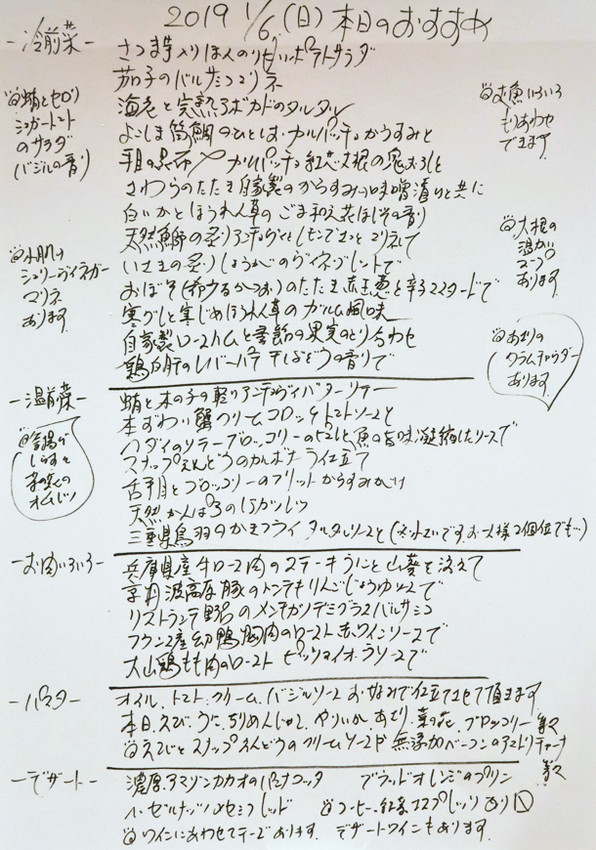 2019 1/6(日)本日のおすすめ
-冷前菜-
さつま芋入りほんのり甘いポテトサラダ
茄子のバルサミコマリネ
海老と完熟アボカドのタルタル
よこしま筒鯛のカルパッチョからすみと
平目の昆布〆カルパッチョ紅芯大根の鬼おろしと
さわらのたたき自家製のからすみの味噌漬りと共に
白いかとほうれん草のごま和え花ほじその香り
天然魚の炙りアンチョヴィとレモンでさっとマリネして
いさきの炙りしょうがのヴィネグレットで
おぼそ(希少なかつお)のたたき赤玉葱と辛子マスタードで
寒グレと寒じめほうれん草のガルム風味
自家製ロースハムと季節の果実のとり合わせ
鶏白肝のレバーパテ干しぶどうの香りで
蛸とセロリ
シュガートマト
のサラダ
バジルの香り
水肌の
シェリーヴィネガー
マリネ
あります
お魚いろいろ
もりあわせ
できます
大根の
温かい
スープ
あります
あさりの
クラムチャウダー
あります
-温前菜-
蛸と木の子の軽いアンチョヴィバターソテー
本ずわい蟹クリームコロッケトマトソースと
ハダイのソテーブロッコリーのちぢみと魚の旨味凝縮したソースで
スナップえんどうのカルボナーラ仕立て
舌平目とブロッコリーのフリットからすみがけ
天然かんぱちのレアカツレツ
三重県鳥羽のかきフライタルタルソースと(大きいです。お一人様2個位でも…)
釜揚げ
しらすと
のオムレツ
-お肉いろいろ-
兵庫県産牛ロース肉のステーキうにと山葵を添えて
京丹波高原豚のトンテキりんごじょうゆソースで
リストランテ野呂のメンチカツデミグラスバルサミコ
フランス産幼鴨胸肉のロースト赤ワインソースで
大山鶏もも肉のローストピッツァイオーラソースで
-パスタ-
オイル、トマト、クリーム、バジルソースお好みで仕立てさせて頂きます
本日、えび、うに、ちりめんじゃこ、やりいか、あさり、菜の花、ブロッコリー等々
えびとスナップえんどうのクリームソースや無添加ベーコンのアマトリチャーナ等々
-デザート-
濃厚アマゾンカカオのパンナコッタ ブラッドオレンジのプリン
ヘーゼルナッツのセミフレッド コーヒー、紅茶エスプレッソあり
ワインにあわせてチーズあります。デザートワインもあります。